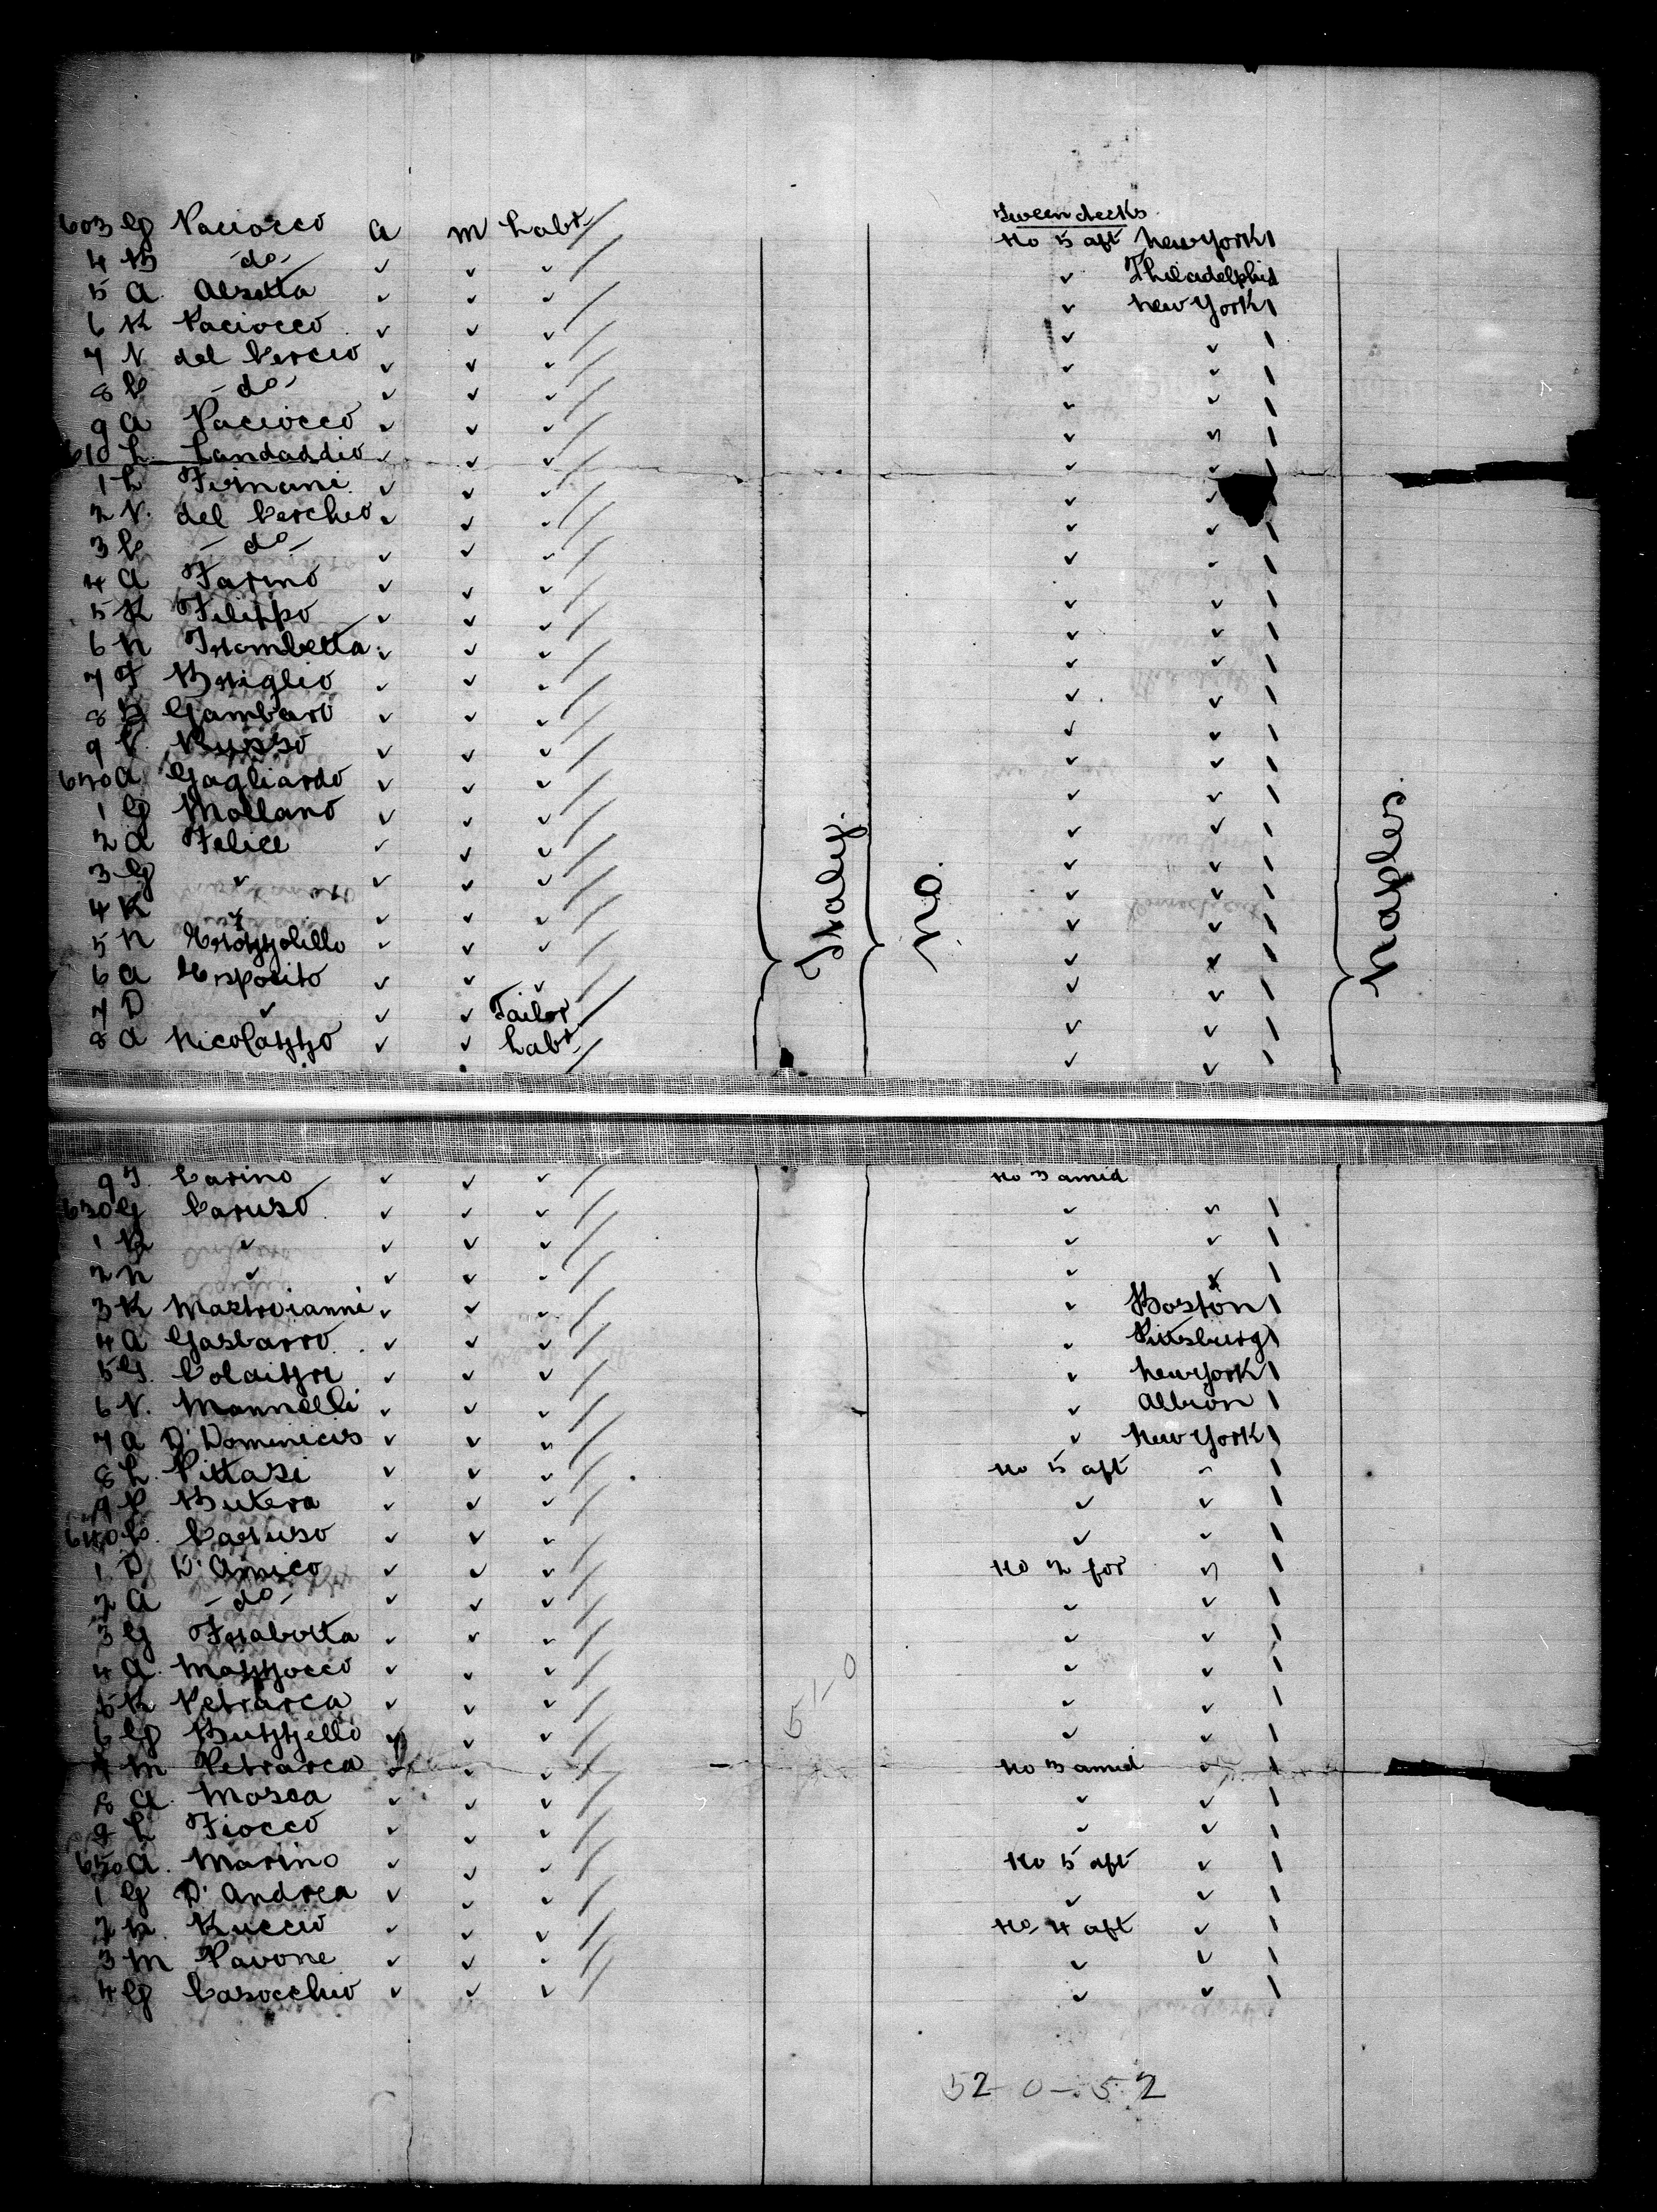 Tween decks
603 G Paciocco a m Labr No 5 aft New York
4 B -do- ✓ ✓ ✓ ✓ Philadelphia
5 A. Alsetta ✓ ✓ ✓ ✓ New York
6 R Paciocco ✓ ✓ ✓ ✓ ✓
7 V. del Vercio ✓ ✓ ✓ ✓ ✓
8 C -do- ✓ ✓ ✓ ✓ ✓
9 A Paciocco ✓ ✓ ✓ ✓ "
610 L. Landaddio ✓ ✓ ✓ ✓ ✓
1 L Firmani ✓ ✓ ✓ ✓ ✓
2 V. del Verchio ✓ ✓ ✓ ✓ ✓
3 C -do- ✓ ✓ ✓ ✓
4 A Farino ✓ ✓ ✓ ✓ ✓
5 R Filippo ✓ ✓ ✓ ✓ ✓
6 N Trombetta ✓ ✓ ✓ ✓ ✓
7 F Briglio ✓ ✓ ✓ ✓ ✓
8 Gambaro ✓ ✓ ✓ ✓ ✓
9 Russo ✓ ✓ ✓ ✓ ✓
620 A Gagliardo ✓ ✓ ✓ ✓ ✓
1 G Mollano ✓ ✓ ✓ ✓ ✓
2 A Felice ✓ ✓ ✓ ✓ ✓
3 G ✓ ✓ ✓ ✓ ✓ ✓
4 R ✓ ✓ ✓ ✓ ✓ ✓
5 N ✓ ✓ ✓ ✓ ✓
6 A Esposito ✓ ✓ ✓ ✓ ✓
7 D ✓ ✓ ✓ Tailor ✓ ✓
8 A Nicolazzo ✓ ✓ Labr ✓ ✓
Italy.
no.
Naples.
9 F. Carino ✓ ✓ ✓ No 3 amid
630 G Caruso ✓ ✓ ✓ ✓ "
1 ✓ ✓ ✓ ✓ ✓ ✓
2 N ✓ ✓ ✓ ✓ ✓ ✓
3 R Mastroianni ✓ ✓ ✓ ✓ Boston
4 A Gasbarro ✓ ✓ ✓ ✓ Pittsburg
5 G. Colaizzi ✓ ✓ ✓ ✓ New York
6 V. Mannelli ✓ ✓ ✓ ✓ Albion
7 A D'Dominicis ✓ ✓ ✓ ✓ New York
8 L. Pittasi ✓ ✓ ✓ No 5 aft "
9 P Butera ✓ ✓ ✓ ✓ ✓
640 C. Caruso ✓ ✓ ✓ ✓ ✓
1 D D'Amico ✓ ✓ ✓ No 2 for "
2 A -do- ✓ ✓ ✓ ✓ ✓
3 G Frabotta ✓ ✓ ✓ ✓ ✓
4 A. Mazzocco ✓ ✓ ✓ ✓ ✓
5 R Petrarca ✓ ✓ ✓ ✓ ✓
6 G Buzzelli ✓ ✓ ✓ ✓ ✓
7 M Petrarca ✓ ✓ ✓ No 3 amid ✓
8 A Mosca ✓ ✓ ✓ ✓ ✓
9 L Fiocco ✓ ✓ ✓ ✓ ✓
650 A. Marino ✓ ✓ ✓ No 5 aft ✓
1 G D'Andrea ✓ ✓ ✓ ✓ ✓
2 N. Ruccio ✓ ✓ ✓ No 4 aft ✓
3 M Pavone ✓ ✓ ✓ ✓ ✓
4 G Casocchio ✓ ✓ ✓ ✓ ✓
51-0
52-0-52